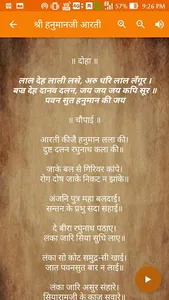 57%
9:26 PM
श्री हनुमानजी आरती
॥ दोहा ॥
लाल देह लाली लसे, अरु धरि लाल लँगूर ।
बज्र देह दानव दलन, जय जय जय कपि सूर ॥
पवन सुत हनुमान की जय
॥ चौपाई ॥
आरती कीजै हनुमान लला की।
दुष्ट दलन रघुनाथ कला की॥
जाके बल से गिरिवर कांपे।
रोग दोष जाके निकट न झांके॥
अंजनि पुत्र महा बलदाई।
सन्तन के प्रभु सदा संहाई॥
दे बीरा रघुनाथ पठाए।
लंका जारि सिया सुधि लाए॥
लंका सो कोट समुद्र-सी खाई।
जात पवनसुत बार न लाई॥
लंका जारि असुर संहारे।
सियारामजी के काज सवारे॥